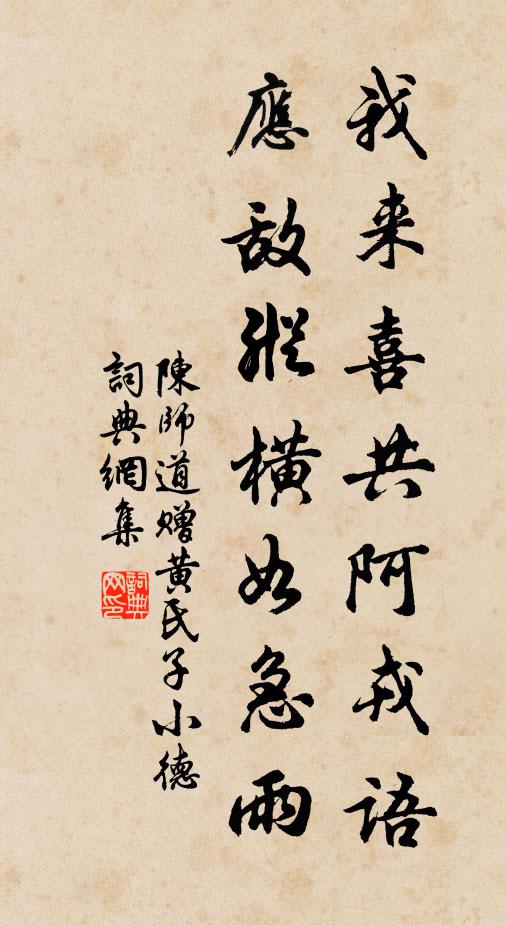 我来喜共阿戎語
應敵縱橫如急雨
陳師道贈黃氏子小德
詞典網集
詞典网印